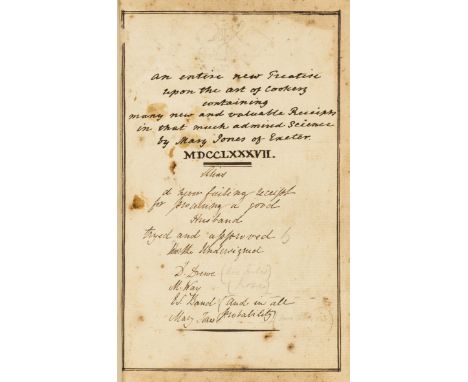 an entire new Treatise
upon the art of Cookery
containing
many new and valuable Receipts
in that much admired Science
by Mary Jones of Exeter.
MDCCLXXXVII.
Alias
a never failing receipt
for procuring a good
Husband
tryed and approved by
the Undersigned
D. Drewe
M. Way
(and in all
probability)